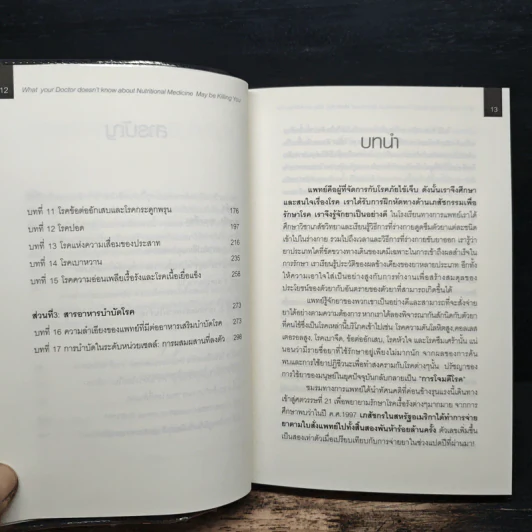 12
What your Doctor doesn't know about Nutritional Medicine May be Killing You
บทที่ 11 โรคข้อต่ออักเสบและโรคกระดูกพรุน 176
บทที่ 12 โรคปอด 197
บทที่ 13 โรคแห่งความเสื่อมของประสาท 216
บทที่ 14 โรคเบาหวาน 235
บทที่ 15 โรคความอ่อนเพลียเรื้อรังและโรคเนื้อเยื่อแข็ง 256
ส่วนที่3: สารอาหารบำบัดโรค 273
บทที่ 16 ความลำเอียงของแพทย์ที่มีต่ออาหารเสริมบำบัดโรค 273
บทที่ 17 การบำบัดในระดับหน่วยเซลล์: การผสมผสานที่ลงตัว 296
13
บทนำ
แพทย์คือผู้ที่จัดการกับโรคภัยไข้เจ็บ ดังนั้นเราจึงศึกษา
และสนใจเรื่องโรค เราได้รับการฝึกหัดทางด้านเภสัชกรรมเพื่อ
รักษาโรค เราจึงรู้จักยาเป็นอย่างดี ในโรงเรียนทางการแพทย์เราได้
ศึกษาวิชาเภสัชวิทยาและเรียนรู้วิธีการที่ร่างกายดูดซึมตัวยาแต่ละชนิด
เข้าไปในร่างกาย รวมไปถึงเวลาและวิธีการที่ร่างกายขับยาออก เรารู้ว่า
ยาประเภทใดที่ขัดขวางทางเดินของเคมีเฉพาะในการเข้าถึงผลสำเร็จใน
การรักษา เราเรียนรู้ประวัติของผลข้างเคียงของยาหลายประเภท อีกทั้ง
ให้ความเอาใจใส่เป็นอย่างสูงกับการทำงานเพื่อสร้างสมดุลของ
ประโยชน์ของตัวยากับอันตรายของตัวยาที่สามารถเกิดขึ้นได้
แพทย์รู้จักยาของพวกเขาเป็นอย่างดีและสามารถที่จะสั่งจ่าย
ยาได้อย่างตามความต้องการ หากเราได้ลองพิจารณากันสักนิดกับตัวยา
ที่คนใช้ซึ่งเป็นโรคเหล่านี้บริโภคเข้าไปเช่น โรคความดันโลหิตสูง,คอเลส
เตอรอลสูง, โรคเบาหวิด, ข้อต่ออักเสบ, โรคหัวใจ และโรคซึมเศร้านั้น แน่
นอนว่ามีรายชื่อยาที่ใช้รักษาอยู่เพียงไม่มากนัก จากผลของการค้น
พบและการใช้ยาปฏิชีวนะเพื่อทำสงครามกับโรคต่างๆนั้น ปรัชญาของ
การใช้ยาของมนุษย์ในยุคปัจจุบันกลับกลายเป็น "การโจมตีโรค"
ชมรมทางการแพทย์ได้นำทัศนคติที่ค่อนข้างรุนแรงนี้เดินทาง
เข้าสู่ศตวรรษที่ 21 เพื่อพยายามรักษาโรคเรื้อรังต่างๆมากมาย จากการ
ศึกษาพบว่าในปี ค.ศ.1997 เภสัชกรในสหรัฐอเมริกาได้ทำการจ่าย
ยาตามใบสั่งแพทย์ไปทั้งสิ้นสองพันห้าร้อยล้านครั้ง ตัวเลขเพิ่มขึ้น
เป็นสองเท่าตัวเมื่อเปรียบเทียบกับการจ่ายยาในช่วงแปดปีที่ผ่านมา!